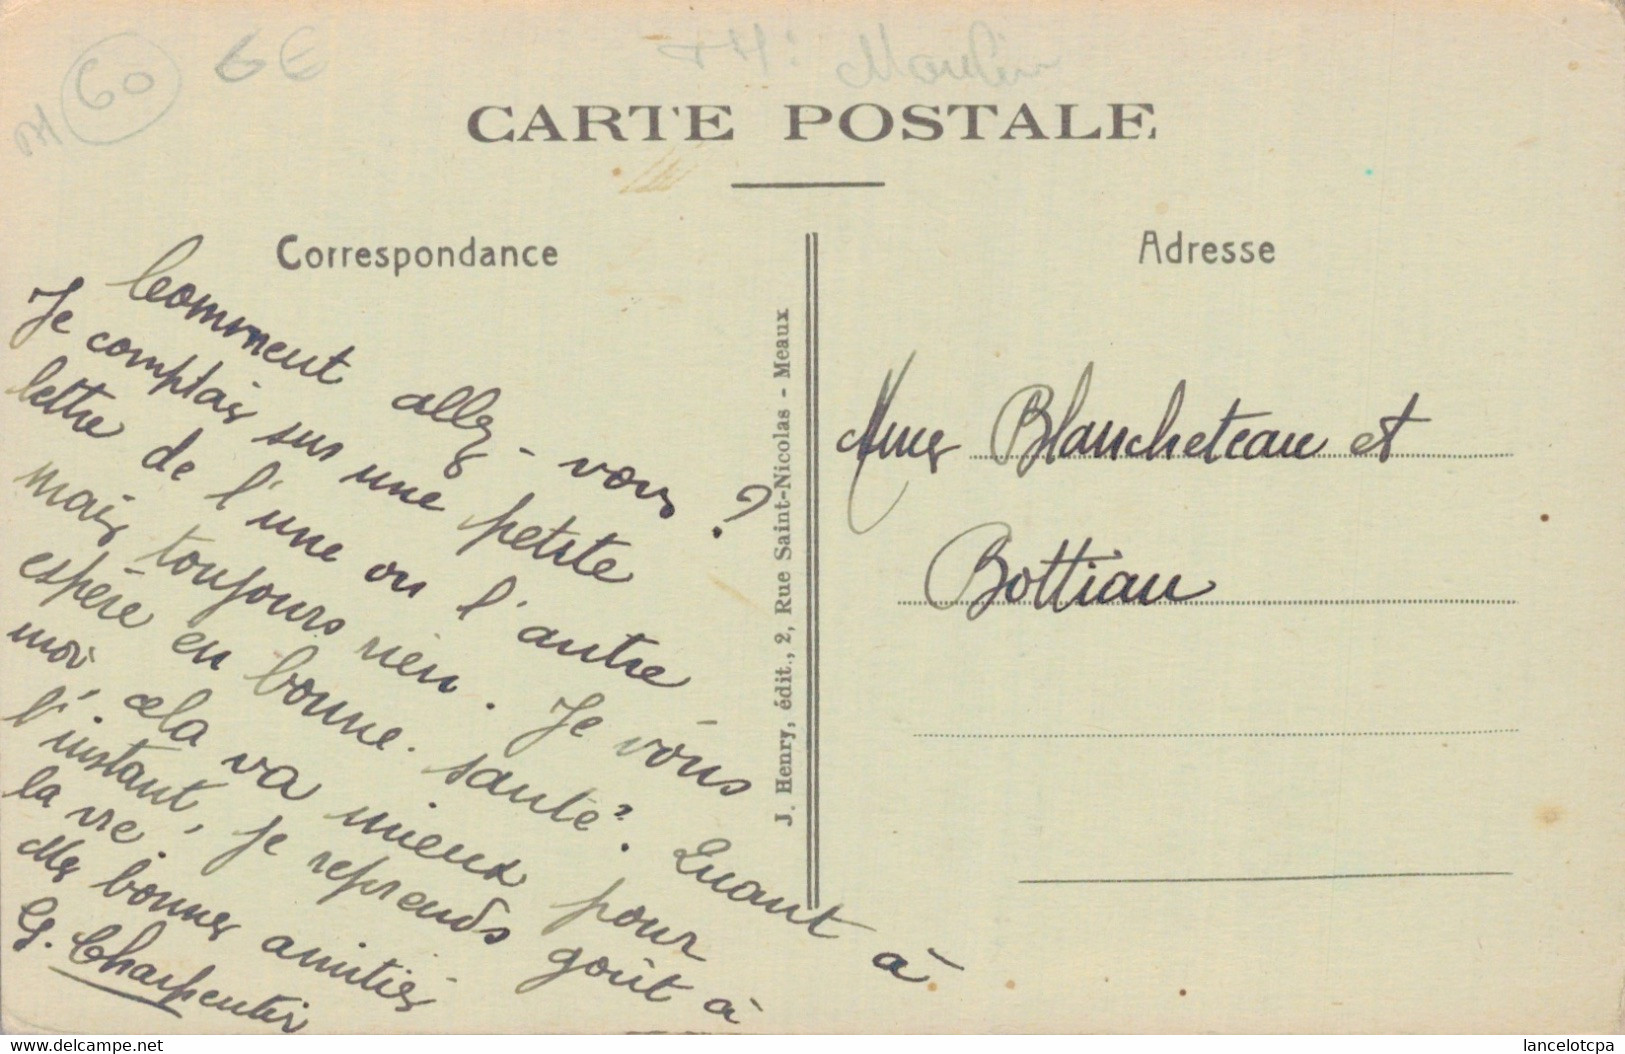 60 6E
TH: Moulin
CARTE POSTALE
Correspondance
Adresse
Comment allez-vous ?
Je comptais sur une petite
lettre de l'une ou l'autre
mais toujours rien. Je vous
espère en bonne santé ?. Quant à
moi, cela va mieux pour
l'instant, je reprends goût à
la vie.
Mes bonnes amitiés
G. Charpentier
J. Henry, édit., 2, Rue Saint-Nicolas - Meaux
Mmes Blancheteau et
Bottiau
www.delcampe.net
lancelotcpa